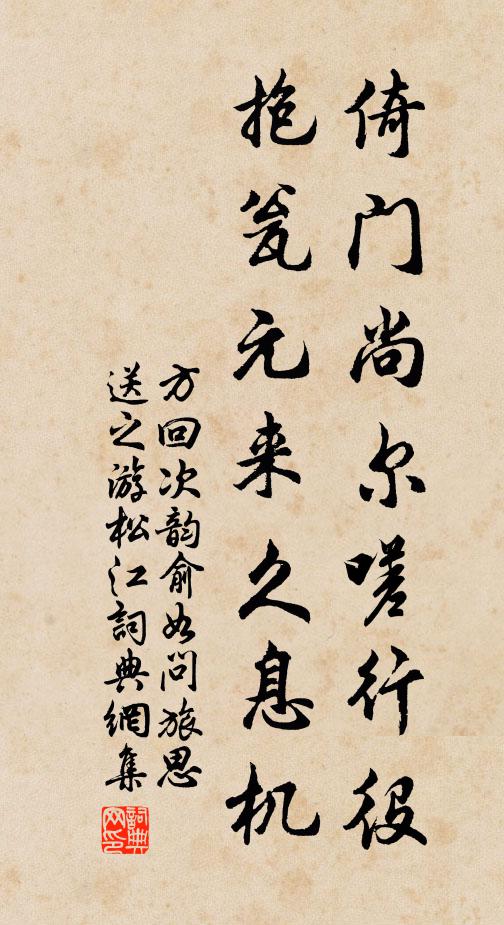 倚门尚尔嗟行役
抱瓮元来久息机
方回次韵俞好问旅思
送之游松江詞典網集
詞典网印